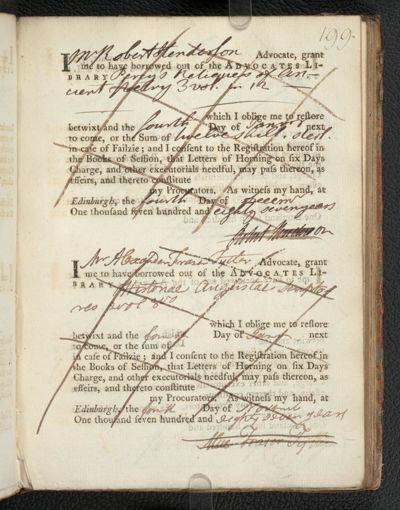 199
I Mr Robert Henderson Advocate, grant
me to have borrowed out of the ADVOCATES LI-
BRARY Percy's Reliques of An-
cient Poetry 3 vol. in 12
which I oblige me to restore
betwixt and the fourth Day of Jany next
to come, or the Sum of twelve shill: Sterl
in case of Failzie; and I consent to the Registration hereof in
the Books of Session, that Letters of Horning on six Days
Charge, and other executorials needful, may pass thereon, as
effeirs, and thereto constitute
my Procurators. As witness my hand, at
Edinburgh, the fourth Day of Decemr
One thousand seven hundred and eighty seven years
Robert Henderson
I Mr Alexander Fraser Tytler Advocate, grant
me to have borrowed out of the ADVOCATES LI-
BRARY Historiae Augustae Scripto
res 2 vol 8vo
which I oblige me to restore
betwixt and the Day of Jany next
to come, or the sum of
in case of Failzie; and I consent to the Registration hereof in
the Books of Session, that Letters of Horning on six Days
Charge, and other executorials needful, may pass thereon, as
effeirs, and thereto constitute
my Procurators. As witness my hand, at
Edinburgh, the fourth Day of
One thousand seven hundred and eighty seven years
Alexr Fraser Tytler